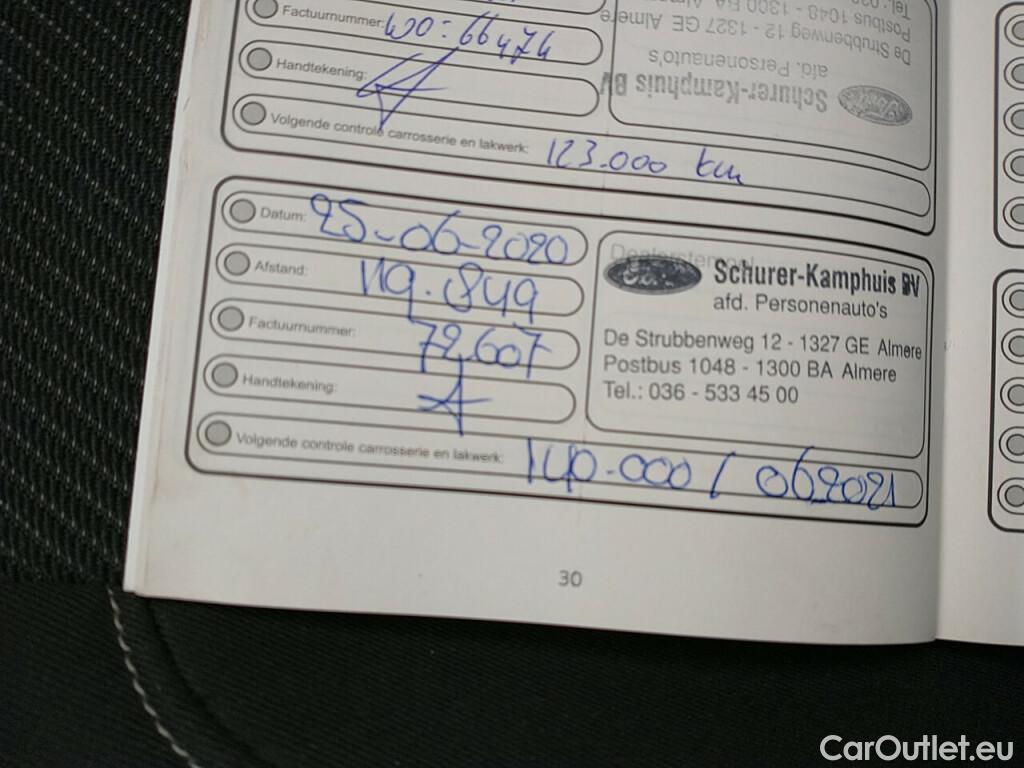 Factuurnummer: WO: 66474
Handtekening:
Volgende controle carrosserie en lakwerk: 123.000 km
Tel.: 036
Postbus 1048 - 1300 BA Almere
De Strubbenweg 12 - 1327 GE Almere
afd. Personenauto's
Schurer-Kamphuis BV
Ford
Datum: 25-06-2020
Afstand: 119.849
Factuurnummer: 72.607
Handtekening:
Volgende controle carrosserie en lakwerk: 140.000 / 06-2021
Dealerstempel
Ford
Schurer-Kamphuis BV
afd. Personenauto's
De Strubbenweg 12 - 1327 GE Almere
Postbus 1048 - 1300 BA Almere
Tel.: 036 - 533 45 00
30
CarOutlet.eu